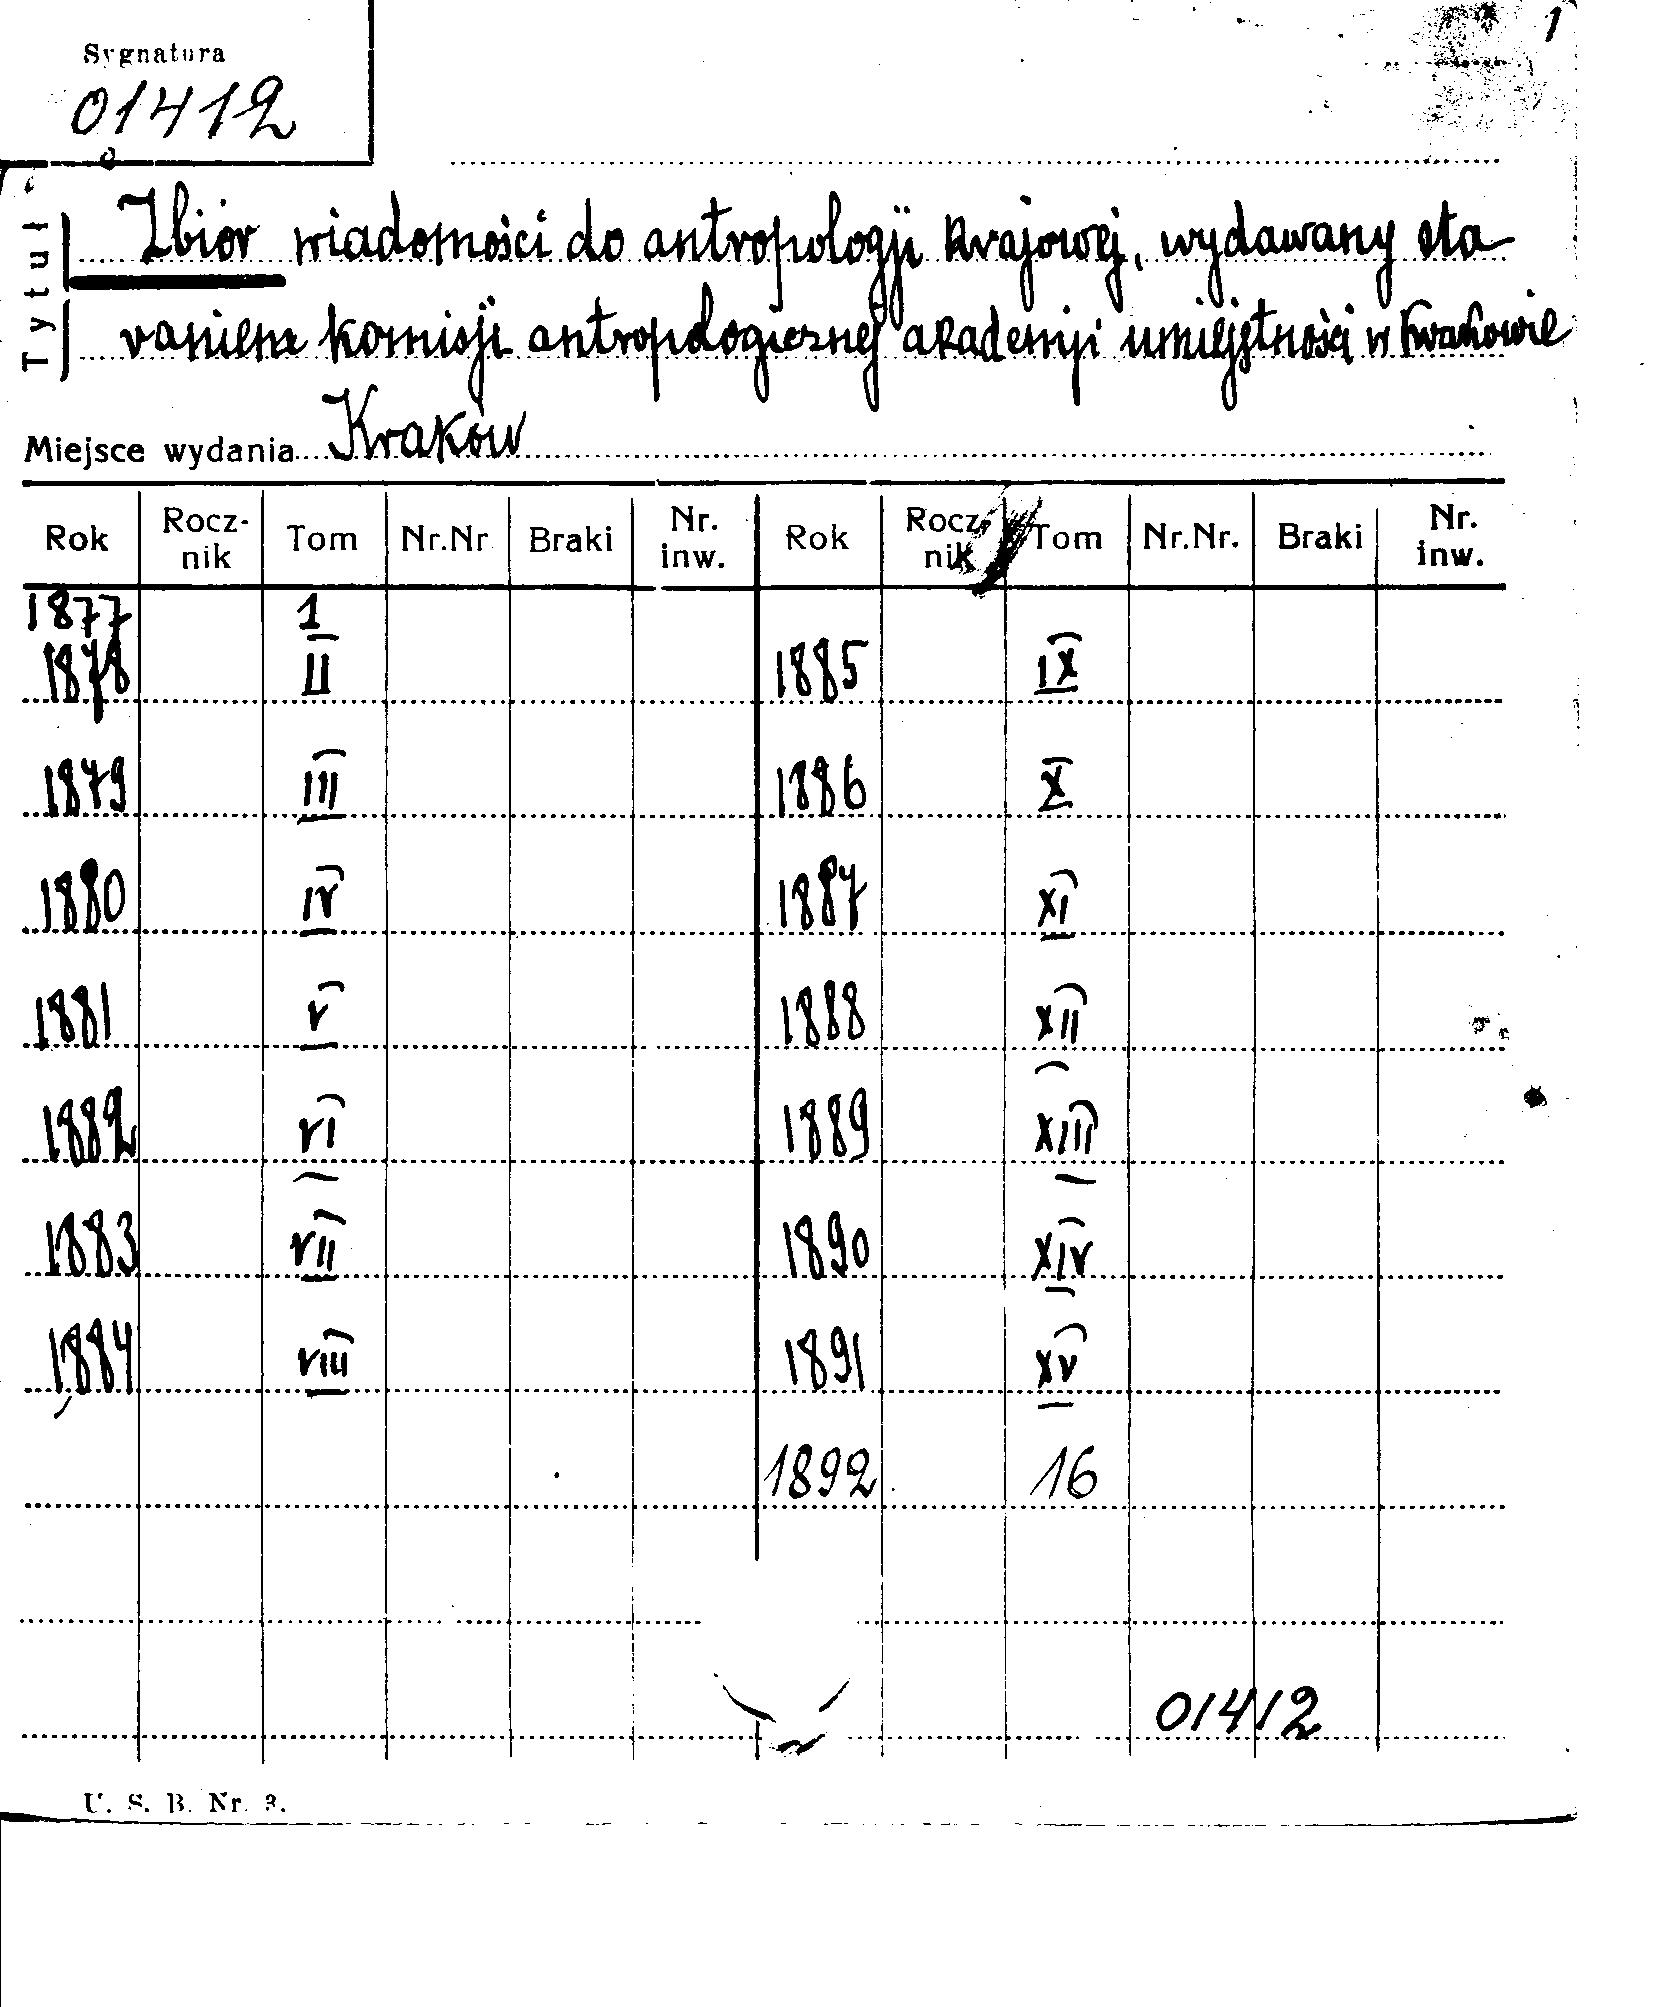 1
Sygnatura
01412
Tytuł
Zbiór wiadomości do antropologji Krajowej, wydawany sta
raniem komisji antropologicznej akademji umiejętności w Krakowie
Miejsce wydania Kraków
Rok Rocz-nik Tom Nr.Nr Braki Nr. inw. Rok Rocz-nik Tom Nr.Nr. Braki Nr. inw.
1877 1
1878 II 1885 IX
1879 III 1886 X
1880 IV 1887 XI
1881 V 1888 XII
1882 VI 1889 XIII
1883 VII 1890 XIV
1884 VIII 1891 XV
1892 16
01412
U. S. B. Nr. 3.